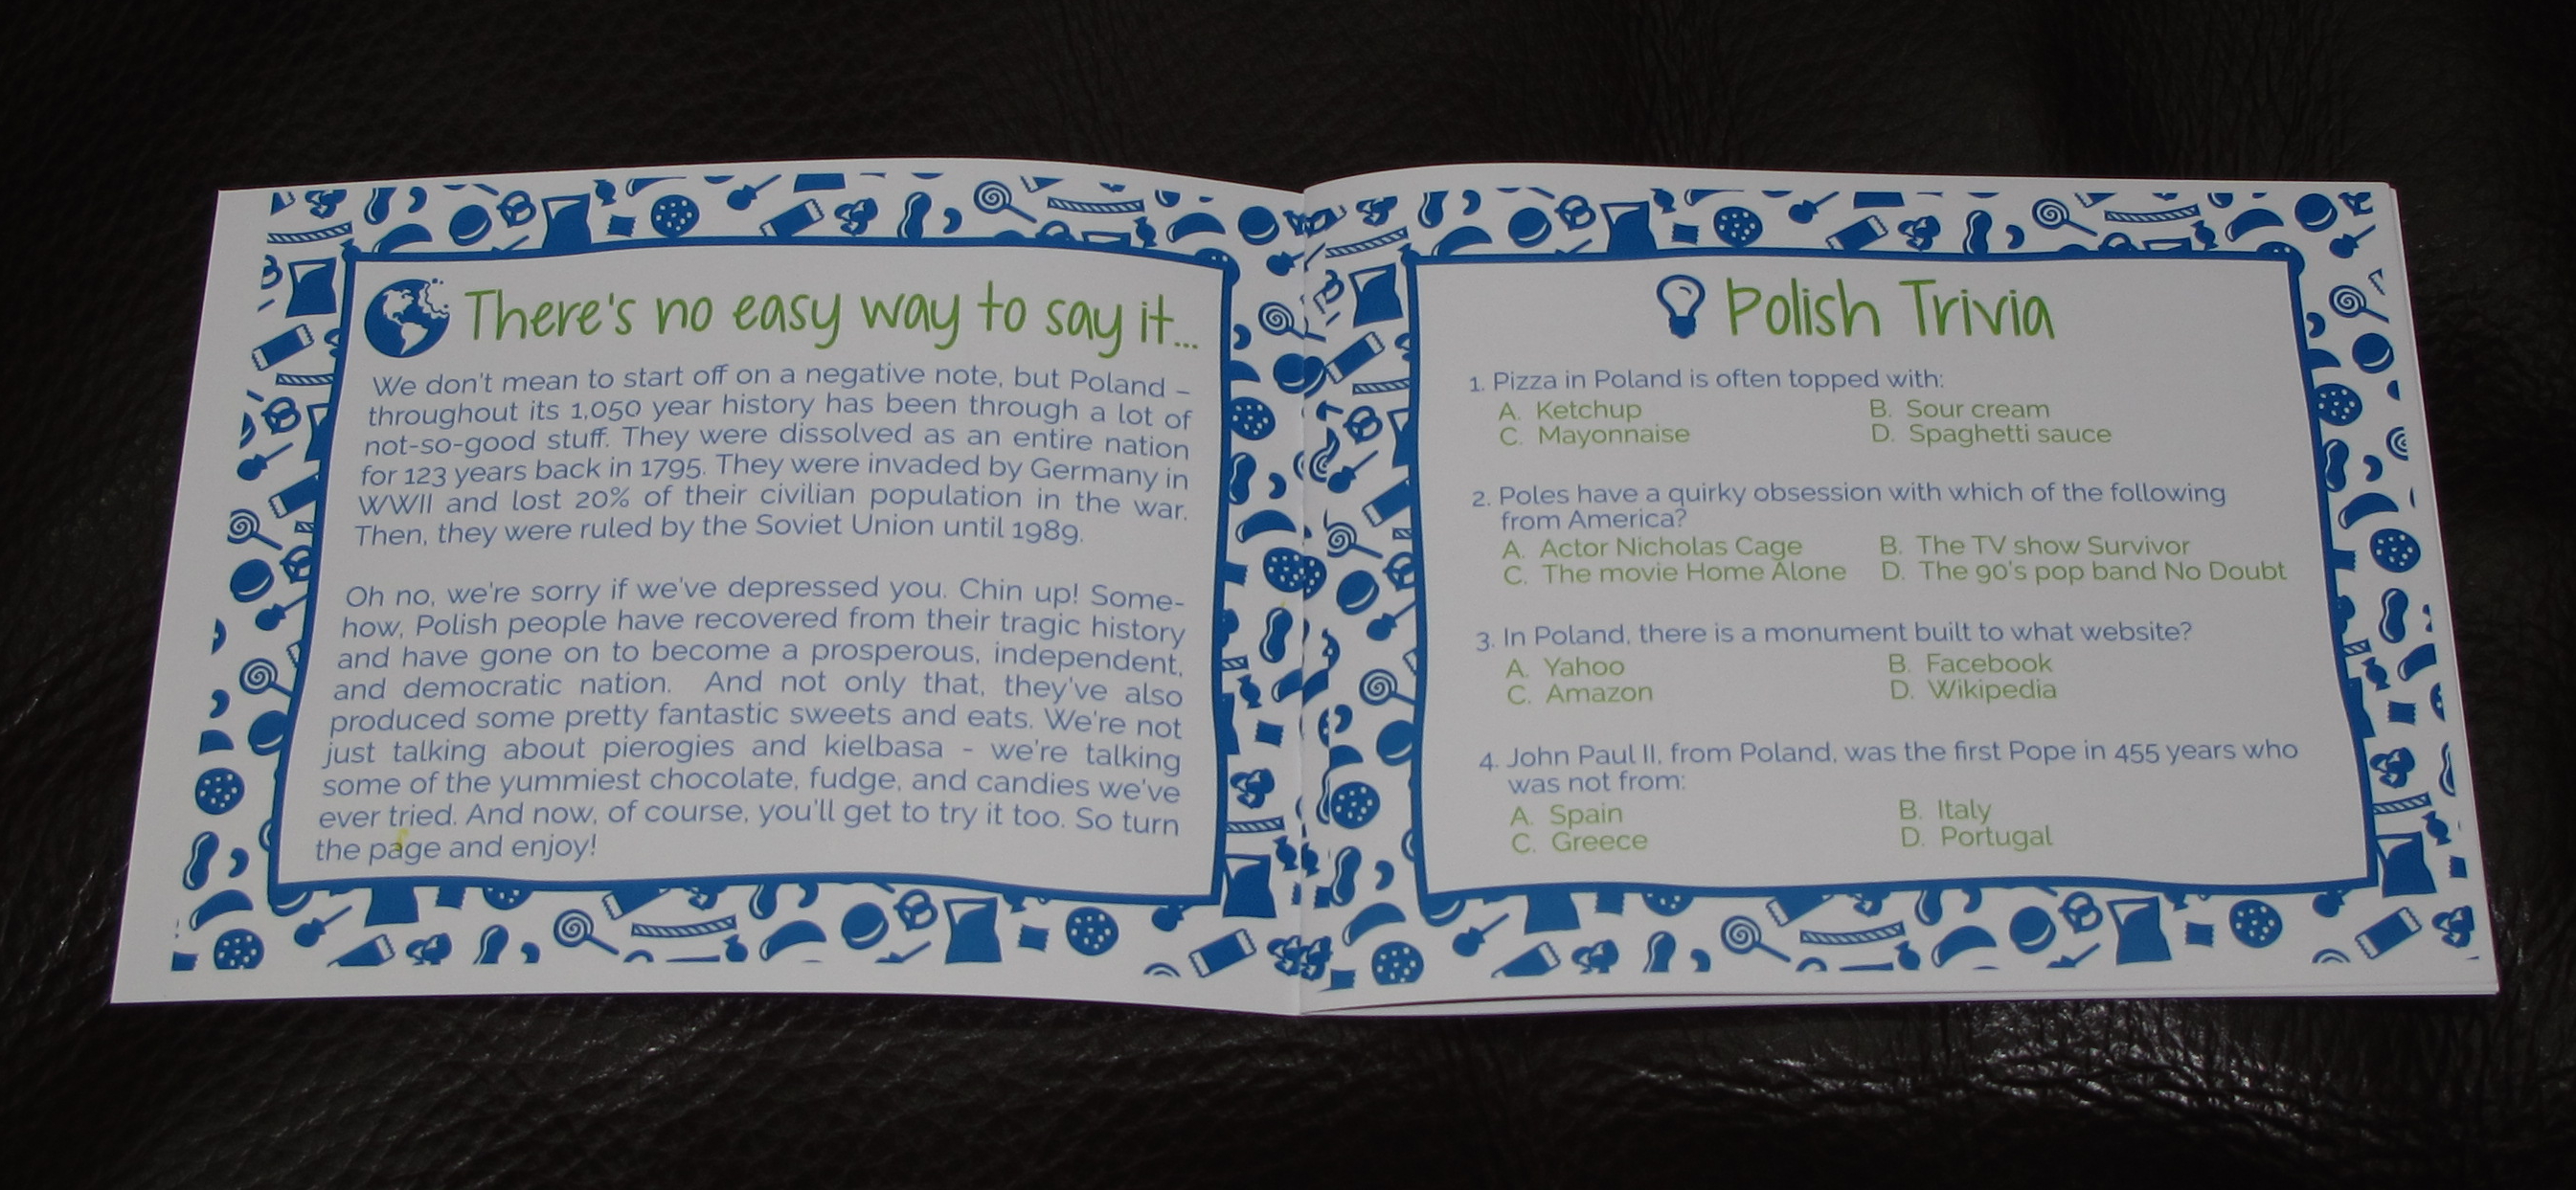 There's no easy way to say it...
We don't mean to start off on a negative note, but Poland –
throughout its 1,050 year history has been through a lot of
not-so-good stuff. They were dissolved as an entire nation
for 123 years back in 1795. They were invaded by Germany in
WWII and lost 20% of their civilian population in the war.
Then, they were ruled by the Soviet Union until 1989.
Oh no, we're sorry if we've depressed you. Chin up! Some-
how, Polish people have recovered from their tragic history
and have gone on to become a prosperous, independent,
and democratic nation. And not only that, they've also
produced some pretty fantastic sweets and eats. We're not
just talking about pierogies and kielbasa - we're talking
some of the yummiest chocolate, fudge, and candies we've
ever tried. And now, of course, you'll get to try it too. So turn
the page and enjoy!
Polish Trivia
1. Pizza in Poland is often topped with:
A. Ketchup B. Sour cream
C. Mayonnaise D. Spaghetti sauce
2. Poles have a quirky obsession with which of the following
from America?
A. Actor Nicholas Cage B. The TV show Survivor
C. The movie Home Alone D. The 90's pop band No Doubt
3. In Poland, there is a monument built to what website?
A. Yahoo B. Facebook
C. Amazon D. Wikipedia
4. John Paul II, from Poland, was the first Pope in 455 years who
was not from:
A. Spain B. Italy
C. Greece D. Portugal